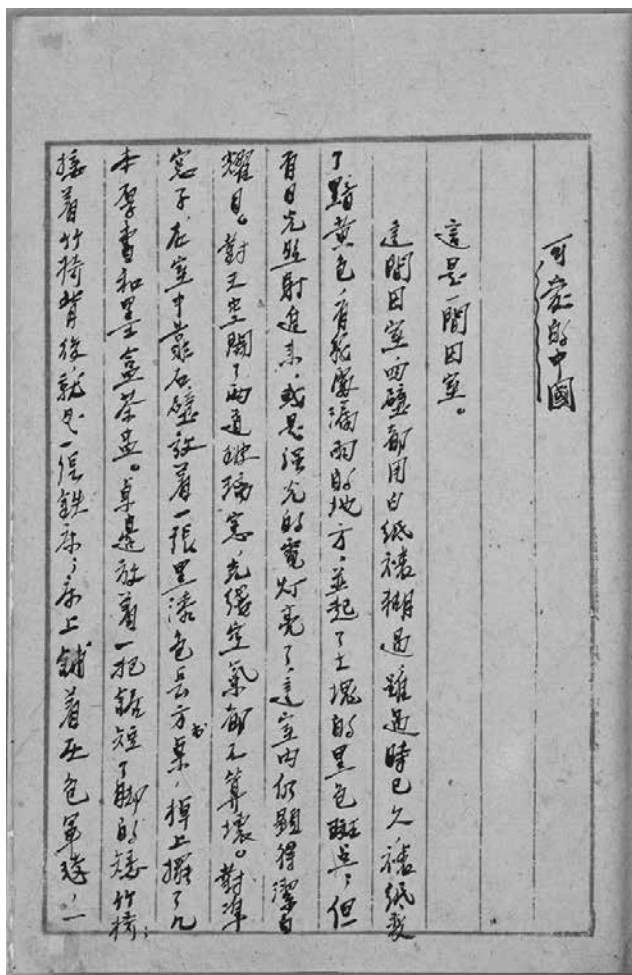 可爱的中國
這是一間囚室。
這間囚室，四壁都用白紙裱糊過，雖過時已久，裱紙變
了黯黄色，有幾處漏雨的地方，並起了大塊的黑色斑点；但
有日光照射進來，或是强光的電灯亮了，這室内仍顯得潔白
耀目。對天空開了兩道玻璃窗，光缐空氣都不算壞。對準
窓子，在室中靠石壁放着一張黑漆色長方書桌，桌上擺了几
本厚書和墨盒茶盅。桌邊放着一把鋸短了脚的矮竹椅；
接着竹椅背後，就是一張鉄床；床上鋪着灰色軍毯，一